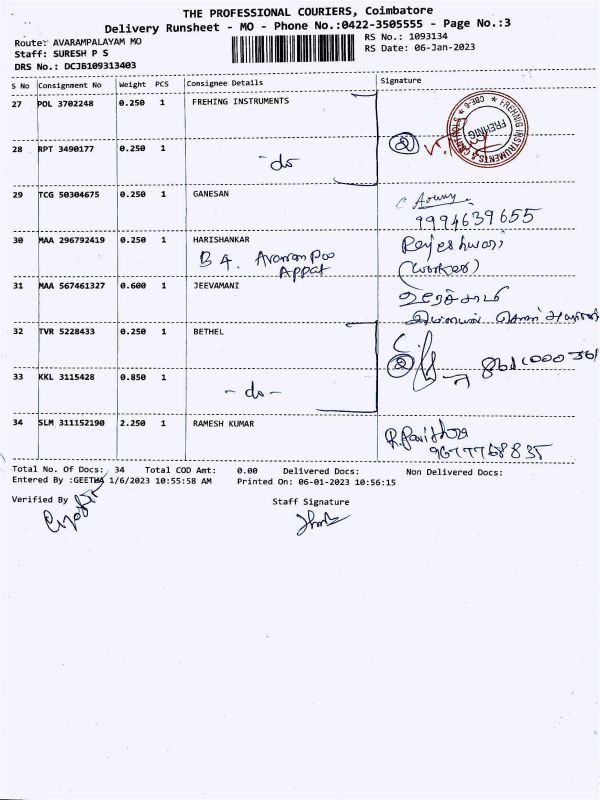 THE PROFESSIONAL COURIERS, Coimbatore
Delivery Runsheet - MO - Phone No.:0422-3505555 - Page No.:3
Route: AVARAMPALAYAM MO
RS No.: 1093134
Staff: SURESH P S
RS Date: 06-Jan-2023
DRS No.: DCJB109313403
S No Consignment No Weight PCS Consignee Details Signature
27 POL 3702248 0.250 1 FREHING INSTRUMENTS
FREHNIG INSTRUMENTS &
FREHNIG
28 RPT 3490177 0.250 1
- do
29 TCG 50304675 0.250 1 GANESAN
9994639655
30 MAA 296792419 0.250 1 HARISHANKAR
Rajeshwari
B 4.
Appat
(worker)
31 MAA 567461327 0.600 1 JEEVAMANI
32 TVR 5228433 0.250 1 BETHEL
33 KKL 3115428 0.850 1
- do -
34 SLM 311152190 2.250 1 RAMESH KUMAR
R.Pavithra
9677768835
Total No. Of Docs: 34 Total COD Amt: 0.00 Delivered Docs: Non Delivered Docs:
Entered By :GEETHA 1/6/2023 10:55:58 AM Printed On: 06-01-2023 10:56:15
Verified By
Staff Signature